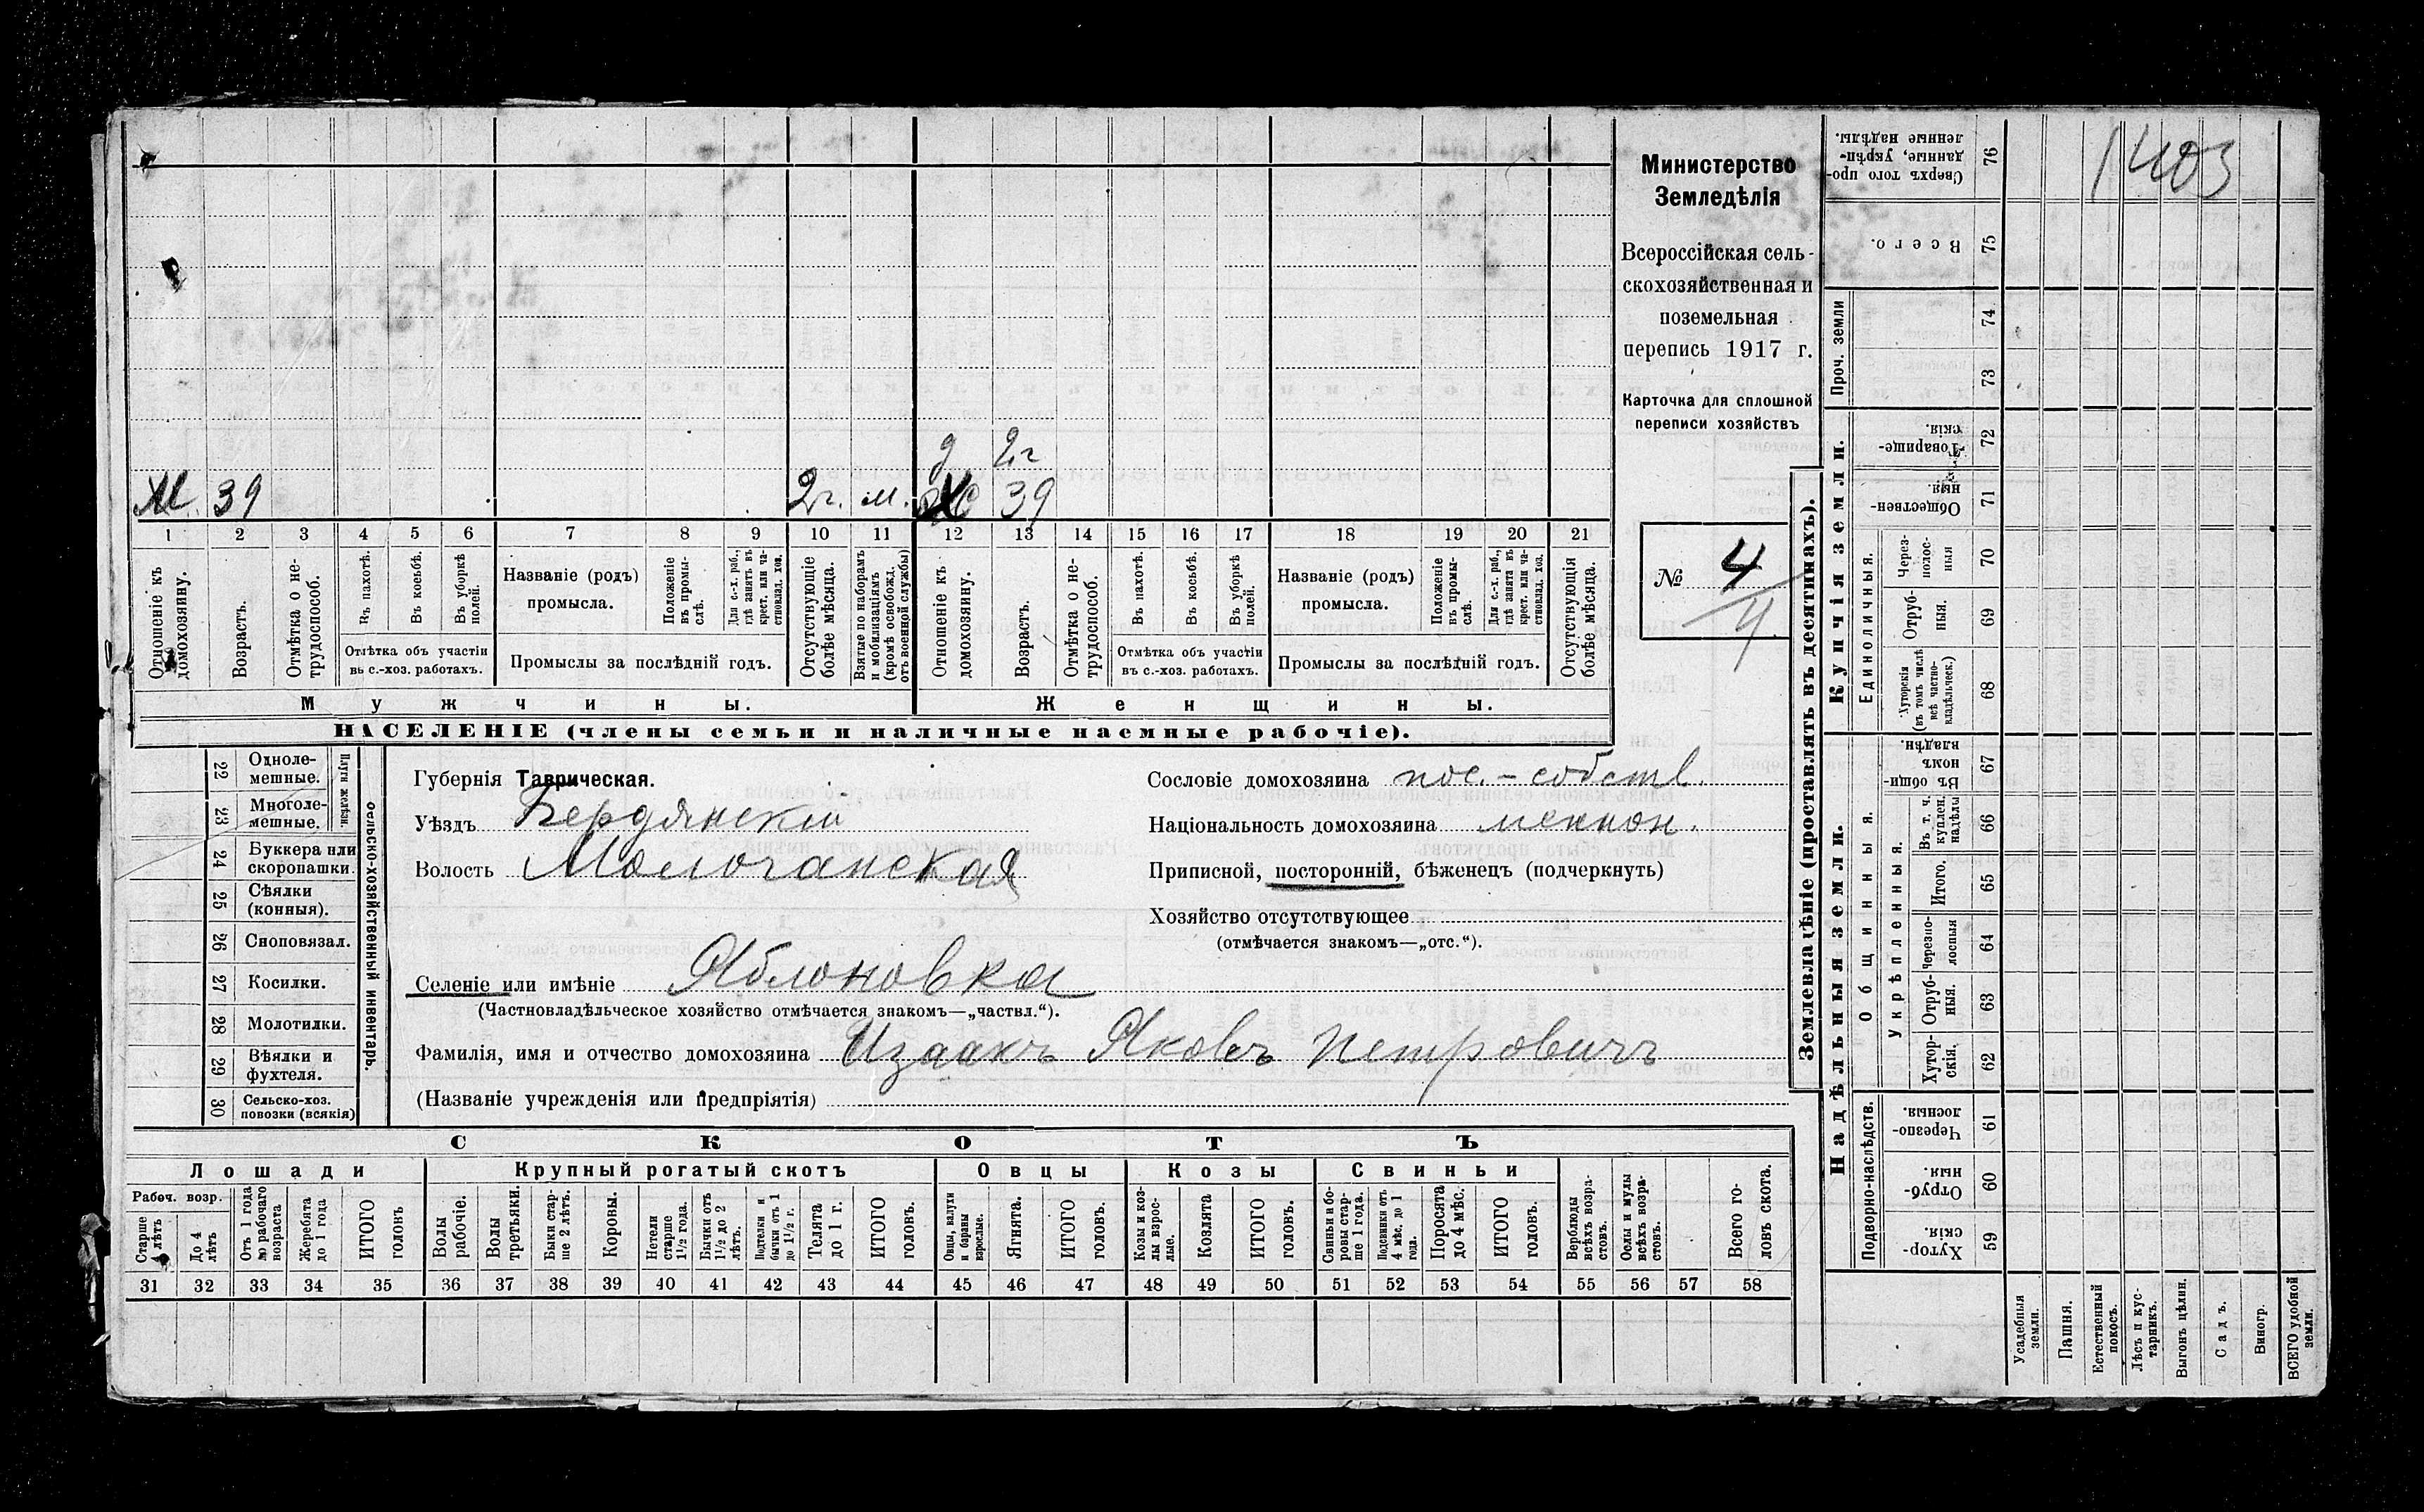 1403
Министерство
Земледѣлія
Всероссійская сель-
скохозяйственная и
поземельная
перепись 1917 г.
Карточка для сплошной
переписи хозяйствъ
№ 4
4
2г
М 39 2г. м. 39
1 2 3 4 5 6 7 8 9 10 11 12 13 14 15 16 17 18 19 20 21
Отношеніе къ
домохозяину.
Возрастъ.
Отмѣтка о не-
трудоспособ.
Въ пахотѣ.
Въ косьбѣ.
Въ уборкѣ
полей.
Отмѣтка объ участіи
въ с.-хоз. работахъ.
Названіе (родъ)
промысла.
Положеніе
въ промы-
слѣ.
Для с.-х. раб.,
гдѣ занятъ въ
крест. или ча-
стновлад. хоз.
Промыслы за послѣдній годъ.
Отсутствующіе
болѣе мѣсяца.
Взятые по наборамъ
и мобилизаціямъ
(кромѣ освобожд.
отъ военной службы)
Отношеніе къ
домохозяину.
Возрастъ.
Отмѣтка о не-
трудоспособ.
Въ пахотѣ.
Въ косьбѣ.
Въ уборкѣ
полей.
Отмѣтка объ участіи
въ с.-хоз. работахъ.
Названіе (родъ)
промысла.
Положеніе
въ промы-
слѣ.
Для с.-х. раб.,
гдѣ занята въ
крест. или ча-
стновлад. хоз.
Промыслы за послѣдній годъ.
Отсутствующія
болѣе мѣсяца.
Мужчины.
Женщины.
НАСЕЛЕНІЕ (члены семьи и наличные наемные рабочіе).
22 Одноле-
мешные.
23 Многоле-
мешные.
Плуги желѣзн.
24 Буккера или
скоропашки.
25 Сѣялки
(конныя).
26 Сноповязал.
27 Косилки.
28 Молотилки.
29 Вѣялки и
фухтеля.
30 Сельско-хоз.
повозки (всякія)
Сельско-хозяйственный инвентарь.
Губернія Таврическая.
Уѣздъ Бердянскій
Волость Молочанская
Селеніе или имѣніе Яблоновка
(Частновладѣльческое хозяйство отмѣчается знакомъ—„частвл.“).
Фамилія, имя и отчество домохозяина Изаакъ Яковъ Петровичъ
(Названіе учрежденія или предпріятія)
Сословіе домохозяина пос.-собств.
Національность домохозяина меннон.
Приписной, посторонній, бѣженецъ (подчеркнуть)
Хозяйство отсутствующее
(отмѣчается знакомъ—„отс.“).
СКОТЪ
Лошади
Крупный рогатый скотъ
Овцы
Козы
Свиньи
Рабоч. возр.
Старше
4 лѣтъ
До 4
лѣтъ
Отъ 1 года
до рабочаго
возраста
Жеребята
до 1 года
ИТОГО
головъ
Волы
рабочіе.
Волы
третьяки.
Быки стар-
ше 2 лѣтъ.
Коровы.
Нетели
старше
1½ года.
Бычки отъ
1½ до 2
лѣтъ.
Подтелки и
бычки отъ 1
до 1½ г.
Телята
до 1 г.
ИТОГО
головъ.
Овцы, валухи
и бараны
взрослые.
Ягнята.
ИТОГО
головъ.
Козы и коз-
лы взрос-
лые.
Козлята
ИТОГО
головъ.
Свиньи и бо-
ровы стар-
ше 1 года.
Подсвинки отъ
4 мѣс. до 1
года.
Поросята
до 4 мѣс.
ИТОГО
головъ.
Верблюды
всѣхъ возра-
стовъ.
Ослы и мулы
всѣхъ возра-
стовъ.
Всего го-
ловъ скота.
31 32 33 34 35 36 37 38 39 40 41 42 43 44 45 46 47 48 49 50 51 52 53 54 55 56 57 58
Землевладѣніе (проставлять въ десятинахъ).
Надѣльныя земли.
Купчія земли.
Проч. земли
Подворно-наслѣдств.
Общинныя.
Укрѣпленныя.
Единоличныя.
Сверхъ того про-
данные, укрѣп-
ленные надѣлы.
76
Всего.
75
74
73
Товарище-
скія.
72
Обществен-
ныя.
71
Через-
полос-
ныя
70
Отруб-
ныя.
69
Хуторскія
(въ томъ числѣ
всѣ частно-
владѣльческ.)
68
Въ общи-
номъ
владѣн.
67
Въ т. ч.
куплен.
надѣлы
66
Итого.
65
Черезпо-
лосныя
64
Отруб-
ныя.
63
Хутор-
скія.
62
Черезпо-
лосныя.
61
Отруб-
ныя.
60
Хутор-
скія.
59
Усадебныя
земли.
Пашня.
Естественный
покосъ.
Лѣсъ и кус-
тарникъ.
Выгонъ цѣлин.
Садъ.
Виногр.
ВСЕГО удобной
земли.